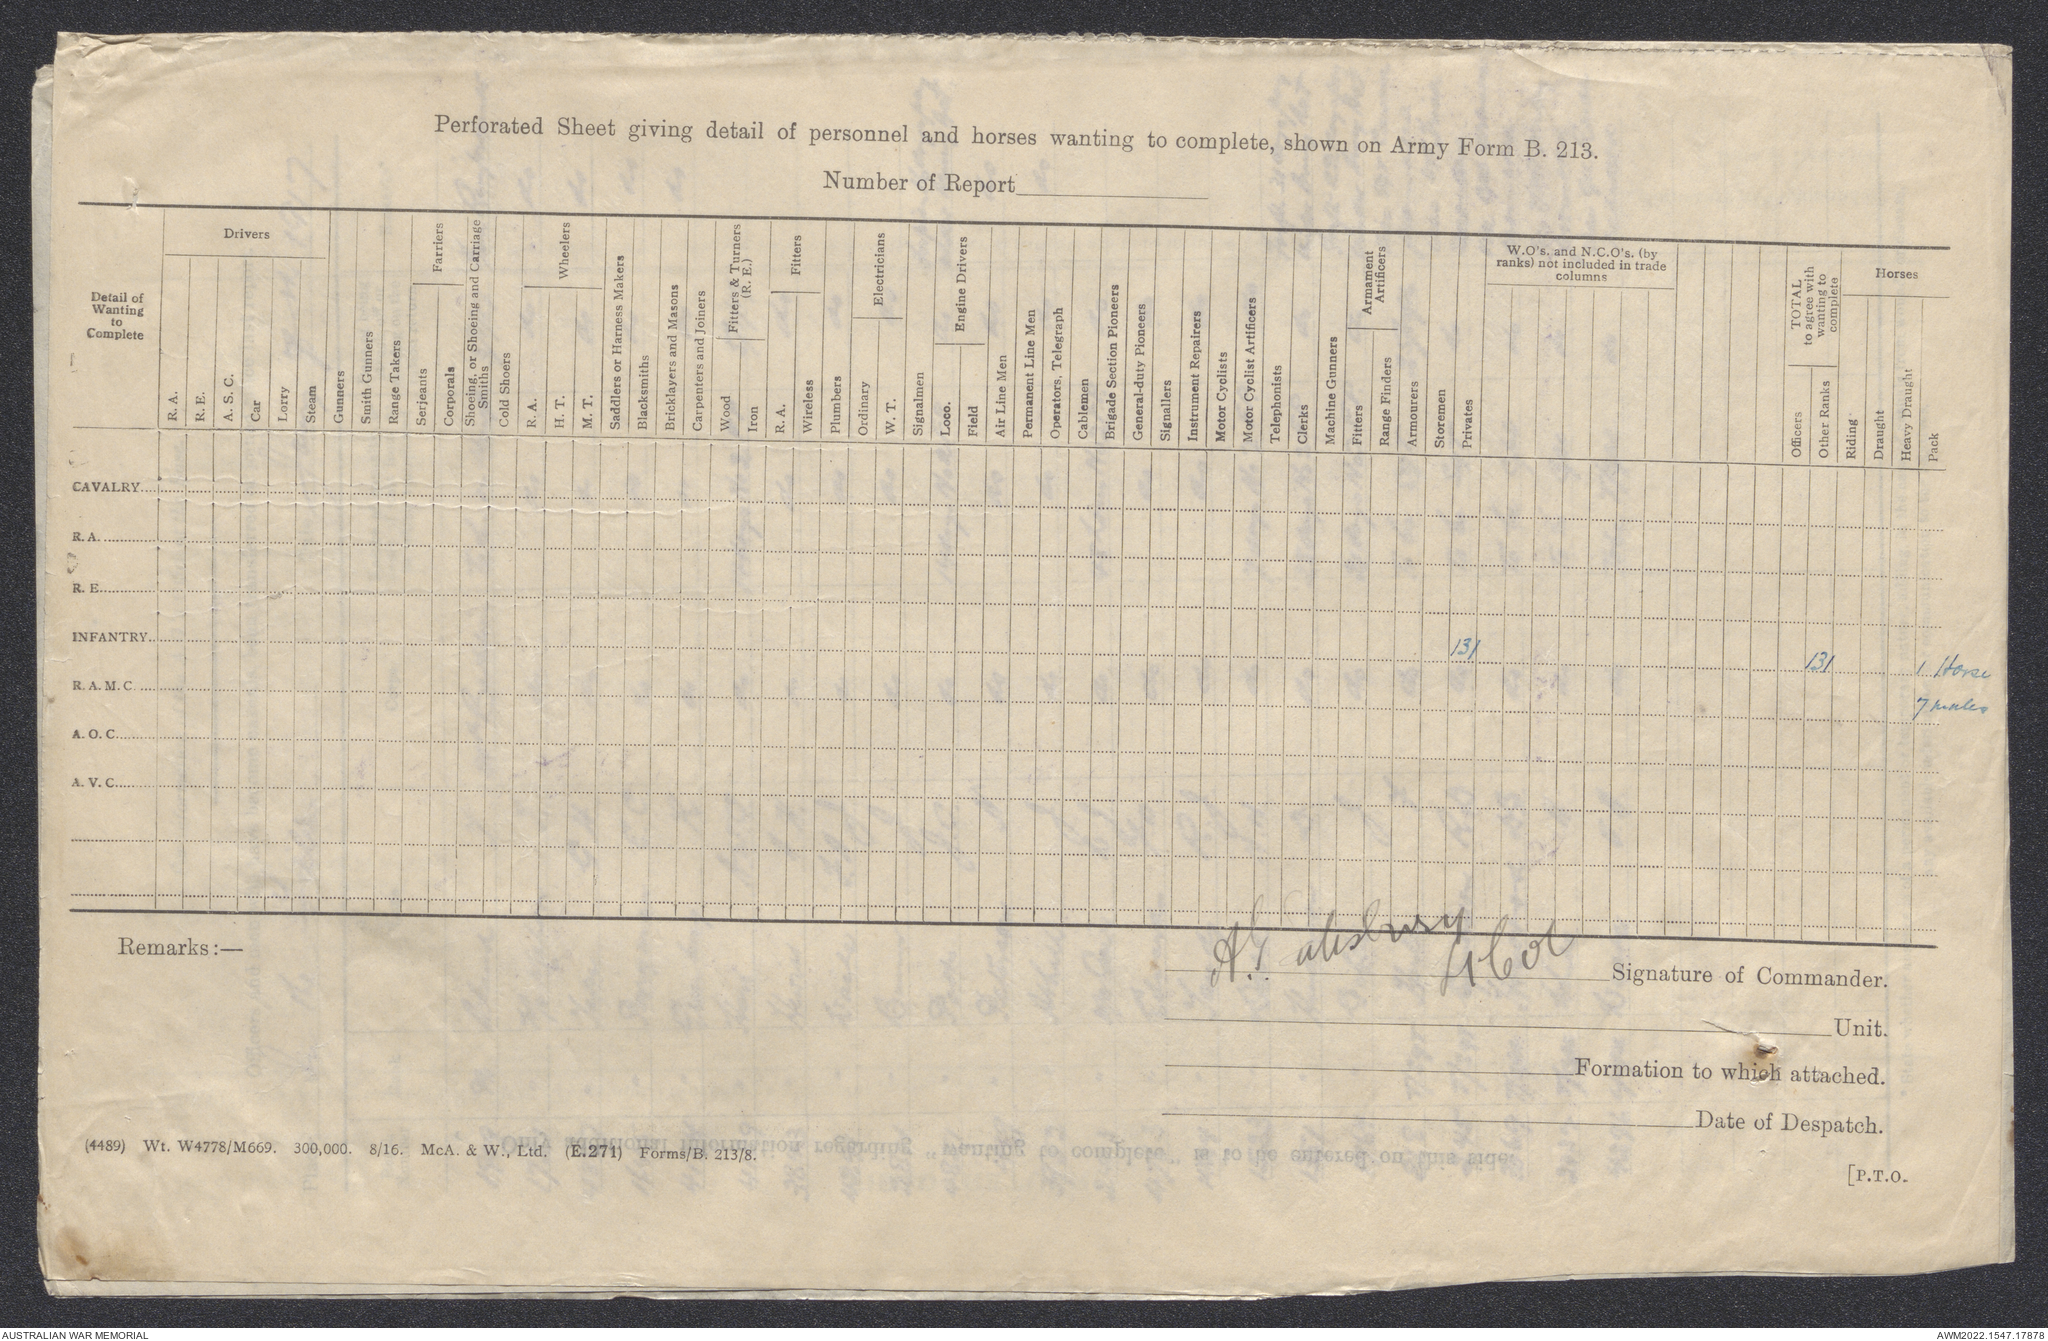 Perforated Sheet giving detail of personnel and horses wanting to complete, shown on Army Form B. 213.
Number of Report
Detail of
Wanting
to
Complete
Drivers
R. A.
R. E.
A. S. C.
Car
Lorry
Steam
Gunners
Smith Gunners
Range Takers
Farriers
Serjeants
Corporals
Shoeing, or Shoeing and Carriage
Smiths
Cold Shoers
Wheelers
R. A.
H. T.
M. T.
Saddlers or Harness Makers
Blacksmiths
Bricklayers and Masons
Carpenters and Joiners
Fitters & Turners
(R. E.)
Wood
Iron
Fitters
R. A.
Wireless
Plumbers
Electricians
Ordinary
W. T.
Signalmen
Engine Drivers
Loco.
Field
Air Line Men
Permanent Line Men
Operators, Telegraph
Cablemen
Brigade Section Pioneers
General-duty Pioneers
Signallers
Instrument Repairers
Motor Cyclists
Motor Cyclist Artificers
Telephonists
Clerks
Machine Gunners
Armament
Artificers
Fitters
Range Finders
Armourers
Storemen
Privates
W.O's. and N.C.O's. (by
ranks) not included in trade
columns
TOTAL
to agree with
wanting to
complete
Officers
Other Ranks
Horses
Riding
Draught
Heavy Draught
Pack
CAVALRY
R. A.
R. E.
INFANTRY 131 131 1 Horse
R. A. M. C. 7 mules
A. O. C.
A. V. C.
Remarks:—
Signature of Commander.
Unit.
Formation to which attached.
Date of Despatch.
(4489) Wt. W4778/M669. 300,000. 8/16. McA. & W., Ltd. (E.271) Forms/B. 213/8.
[P.T.O.
Only additional information regarding "wanting to complete" is to be entered on this side.
AUSTRALIAN WAR MEMORIAL
AWM2022.1547.17878